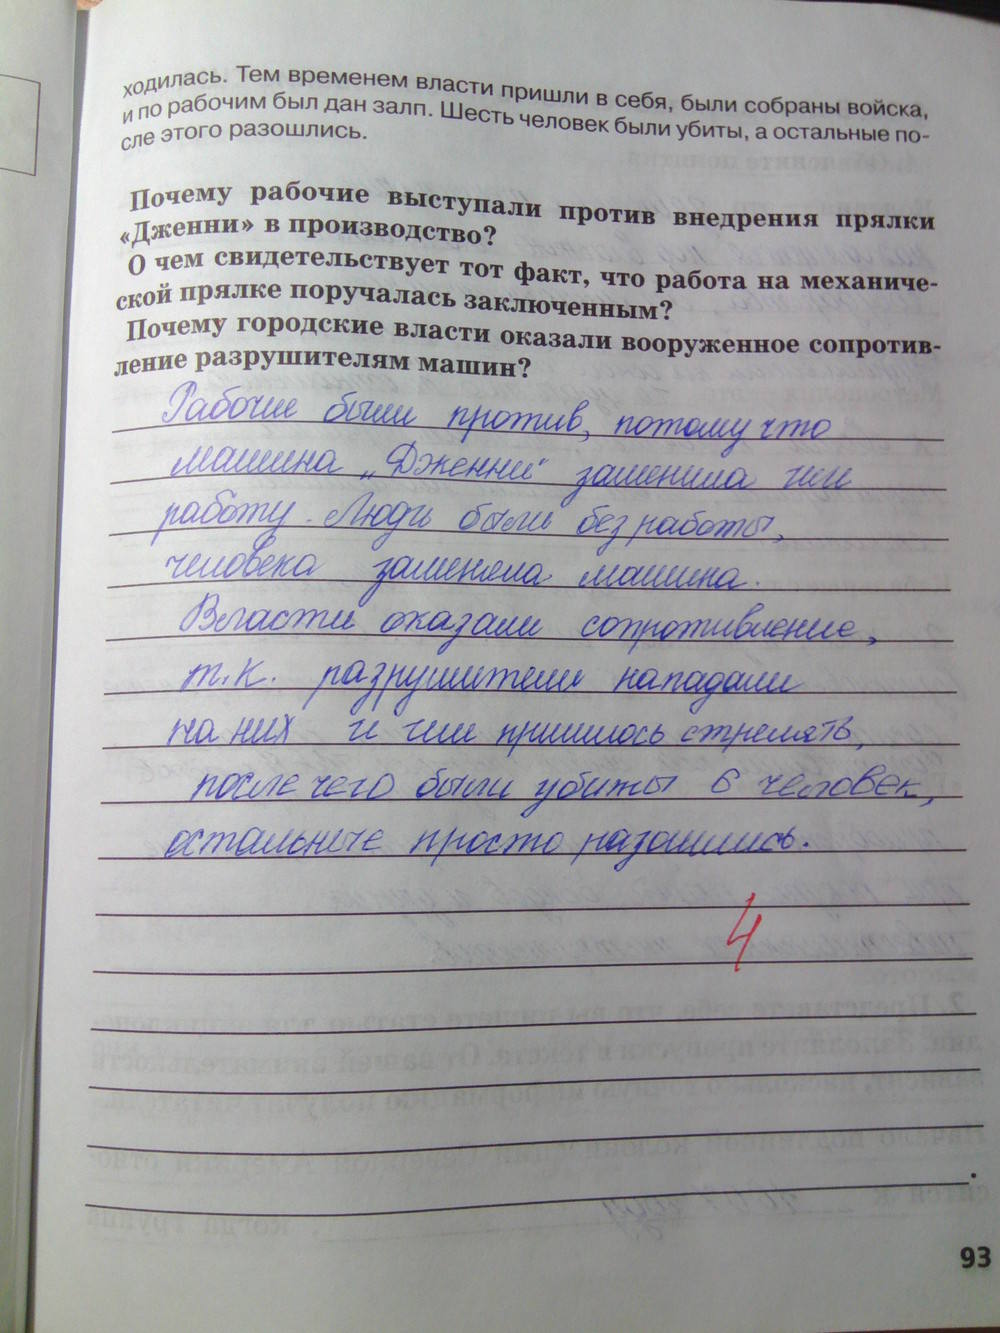 ходилась. Тем временем власти пришли в себя, были собраны войска,
и по рабочим был дан залп. Шесть человек были убиты, а остальные по-
сле этого разошлись.
Почему рабочие выступали против внедрения прялки
«Дженни» в производство?
О чем свидетельствует тот факт, что работа на механиче-
ской прялке поручалась заключенным?
Почему городские власти оказали вооруженное сопротив-
ление разрушителям машин?
Рабочие были против, потому что
машина „Дженни" заменила им
работу. Люди были без работы,
человека заменяла машина.
Власти оказали сопротивление,
т.к. разрушители нападали
на них и им пришлось стрелять,
после чего были убиты 6 человек,
остальные просто разошлись.
4
93